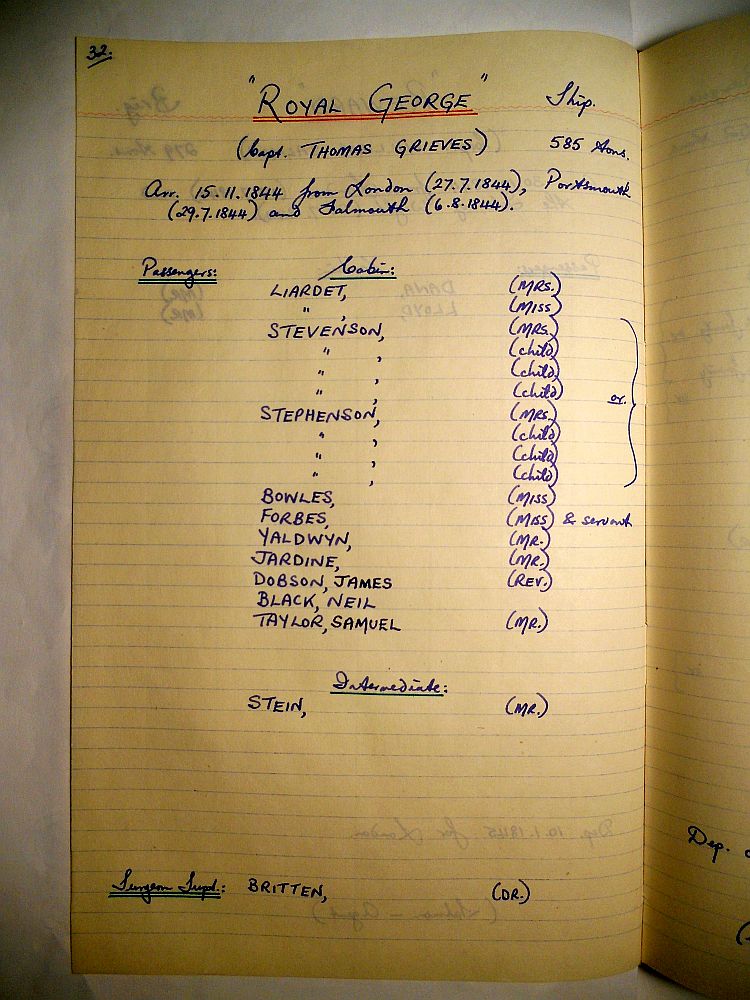 32.
"ROYAL GEORGE" Ship.
(Capt. THOMAS GRIEVES) 585 tons.
Arr. 15.11.1844 from London (27.7.1844), Portsmouth
(29.7.1844) and Falmouth (6.8.1844).
Passengers: Cabin:
LIARDET, (MRS.)
" , (MISS)
STEVENSON, (MRS.)
" , (child)
" , (child)
" , (child)
or.
STEPHENSON, (MRS.)
" , (child)
" , (child)
" , (child)
BOWLES, (MISS)
FORBES, (MISS) & servant
YALDWYN, (MR.)
JARDINE, (MR.)
DOBSON, JAMES (REV.)
BLACK, NEIL
TAYLOR, SAMUEL (MR.)
Intermediate:
STEIN, (MR.)
Dep.
Surgeon Supt.: BRITTEN, (DR.)